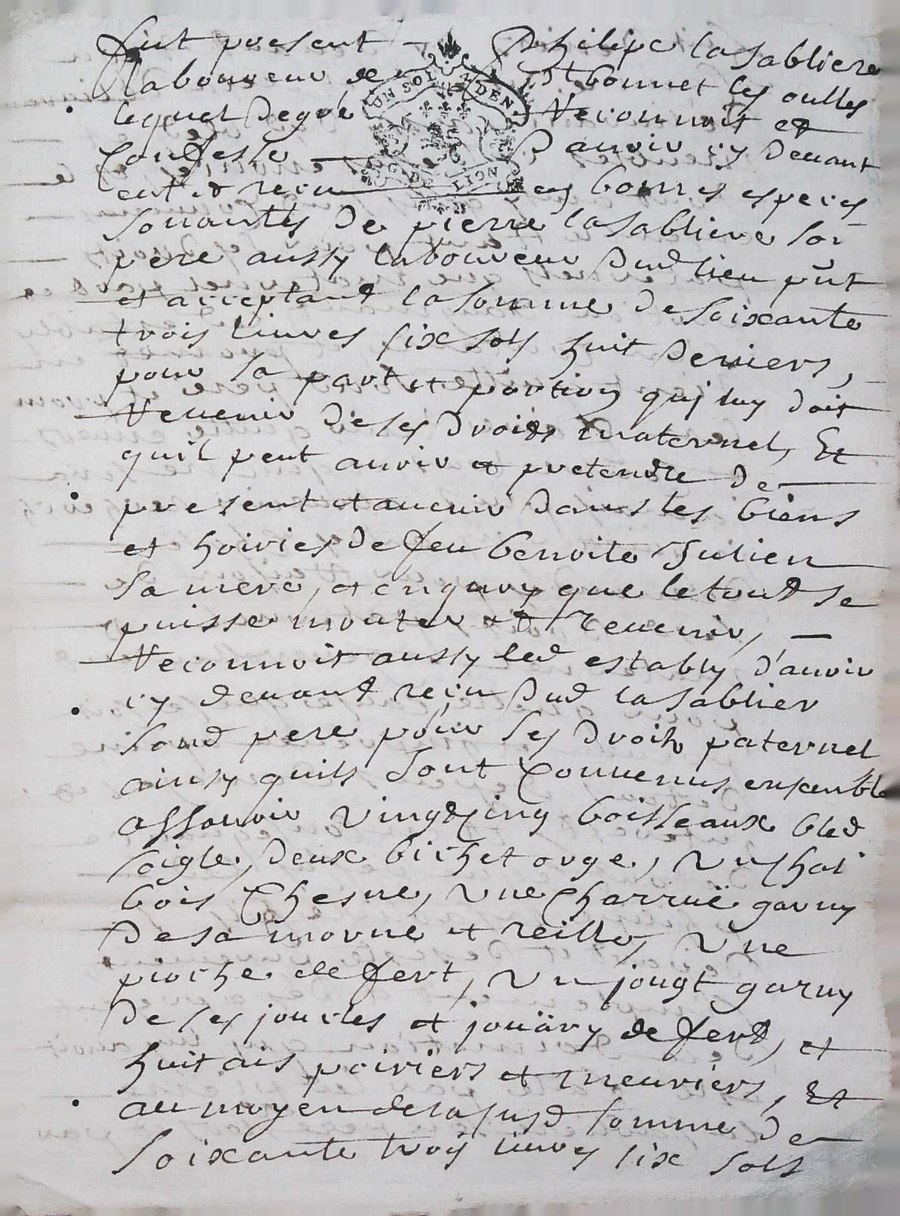 fut present Philipe lasabliere
laboureur de St bonnet les oulles
lequel de gré Reconnoit et
Confesse D'auoir cy deuant
UN SOL DEN
G. DE LION
eut et reçu en bonnes especes
sonantes de pierre lasabliere son
pere aussy laboureur dud lieu pnt
et acceptant la somme de soixante
trois liures six sols huit deniers,
pour sa part et portion quj luy doit
Reuenir de ses droids maternel, Et
quil peut auoir et pretendre de
present et auenir dans les biens
et hoiries de feu benoite Julien
sa mere, et en quoy que le tout se
puisse monter et reuenir,
Reconnoit aussy led estably d'auoir
cy deuant reçu dud lasablier
sond pere pour ses droits paternel
ainsy quils sont Conuenus ensemble
assauoir vingt cinq boisseaux bled
soigle, deux bichet orge, vn char
bois Chesne, vne Charruë garny
de sa morne et reille, vne
pioche de fert, vn jougt garny
de ses joucles et de fert, et
huit ais poiriers et meuriers, Et
au moyen de la susd somme de
soixante trois liures six sols